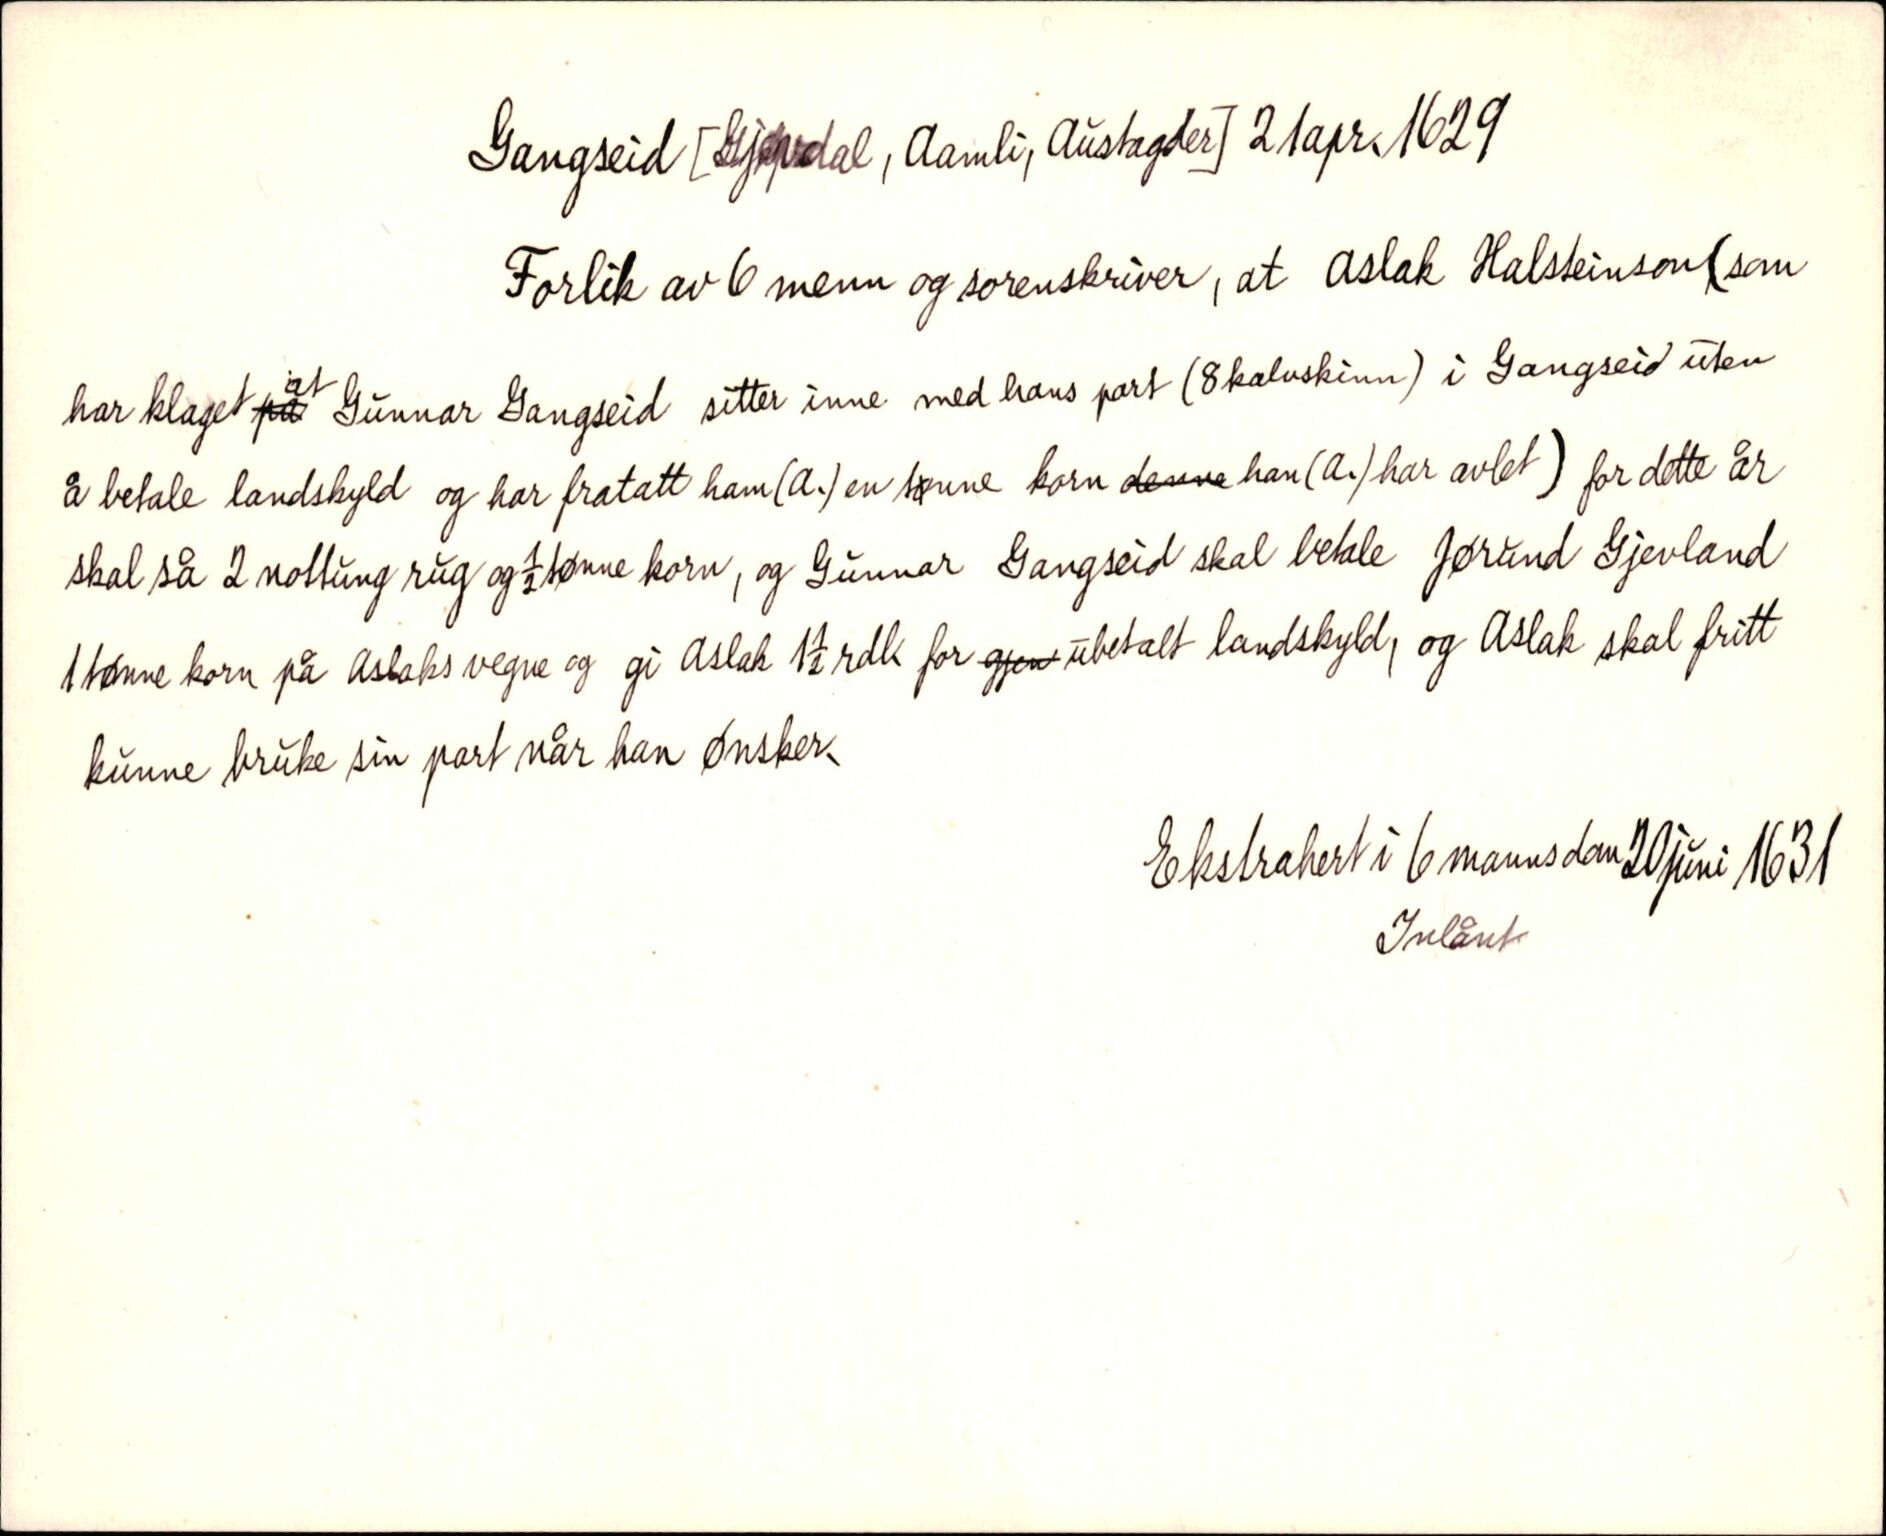 Gangseid [Gjøvdal, Aamli, Austagder] 21 apr. 1629
Forlik av 6 menn og sorenskriver, at Aslak Halsteinson (som
har klaget på at Gunnar Gangseid sitter inne med hans part (8 kalvskinn) i Gangseid uten
å betale landskyld og har fratatt ham (A.) en tønne korn denne han (A.) har avlet) for dette år
skal så 2 nottung rug og ½ tønne korn, og Gunnar Gangseid skal betale Jørund Gjevland
1 tønne korn på Aslaks vegne og gi Aslak 1½ rdl. for gjen ubetalt landskyld, og Aslak skal fritt
kunne bruke sin part når han ønsker.
Ekstrahert i 6 mannsdom 20 juni 1631
Inlånt